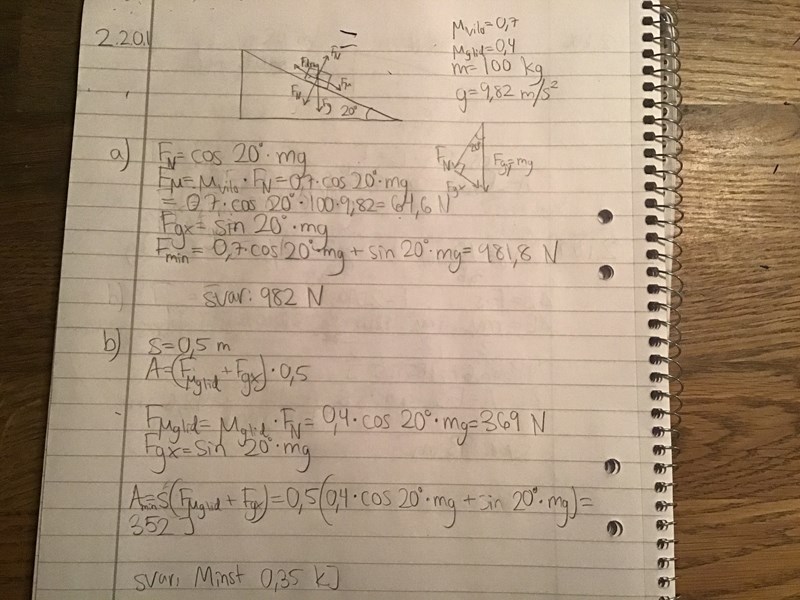 2.20.1
μvila=0,7
μglid=0,4
m=100 kg
g=9,82 m/s²
FN
Fdrag
Fμ
FN
Fg
20°
20°
FN
Fg=mg
Fgx
a) FN=cos 20°·mg
Fμ=μvila·FN=0,7·cos 20°·mg
=0,7·cos 20°·100·9,82=641,6 N
Fgx=sin 20°·mg
Fmin=0,7·cos 20°·mg+sin 20°·mg=981,8 N
svar: 982 N
b) s=0,5 m
A=(Fμglid+Fgx)·0,5
Fμglid=μglid·FN=0,4·cos 20°·mg=369 N
Fgx=sin 20°·mg
Amin=s(Fμglid+Fgx)=0,5(0,4·cos 20°·mg+sin 20°·mg)=
352 J
svar: Minst 0,35 kJ